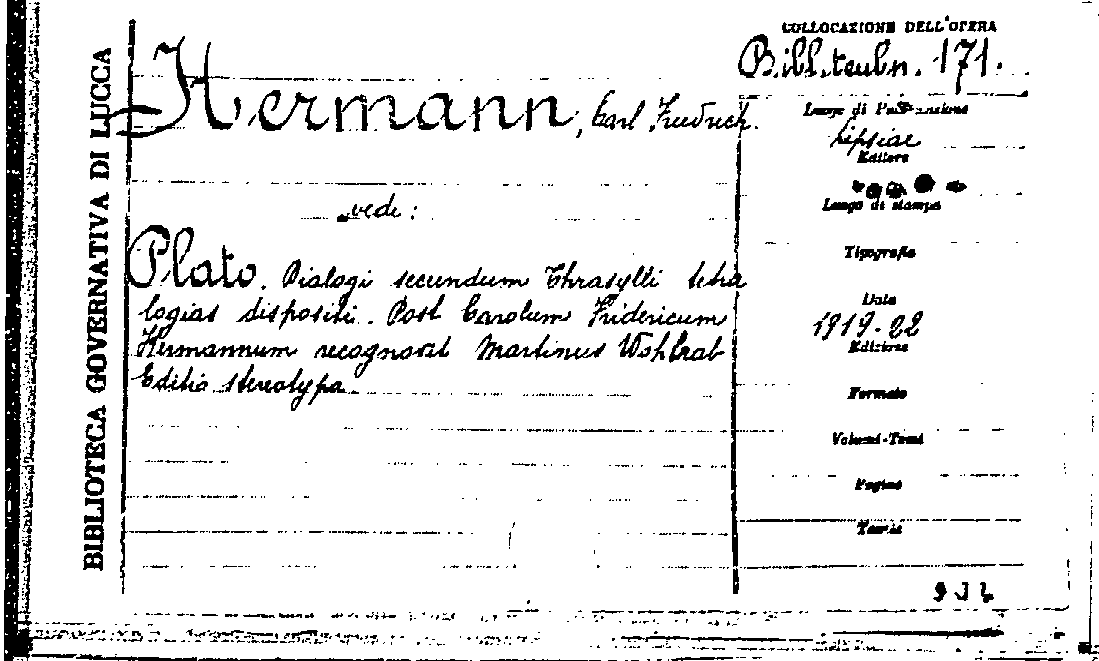 BIBLIOTECA GOVERNATIVA DI LUCCA
Hermann, Carl Friedrich.
vede:
Plato. Dialogi secundum Thrasylli tetra
logias dispositi. Post Carolum Fridericum
Hermannum recognovit Martinus Wohlrab
Editio stereotypa
COLLOCAZIONE DELL'OPERA
Bibl. teubn. 171.
Luogo di Pubblicazione
Lipsiae
Editore
Luogo di stampa
Tipografia
Data
1919-22
Edizione
Formato
Volumi-Tomi
Pagine
Tavole